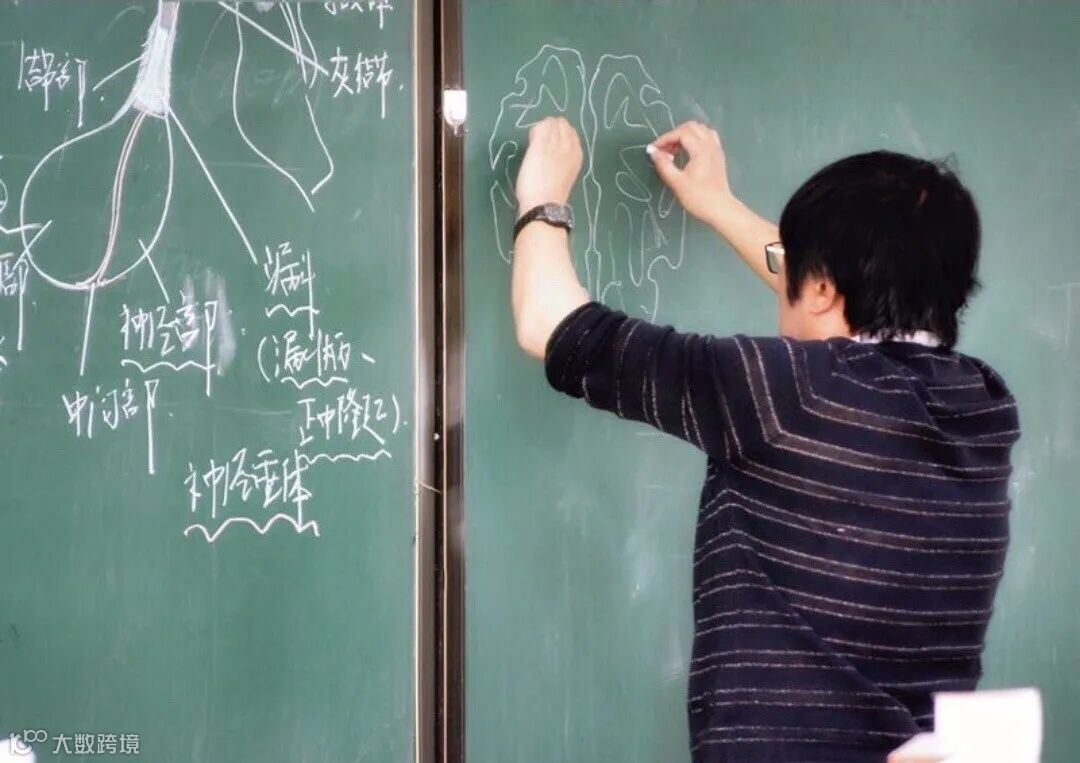 灰结节.
结节部.
漏斗
(漏斗柄、
正中隆起).
神经部
中间部.
神经垂体
大数跨境